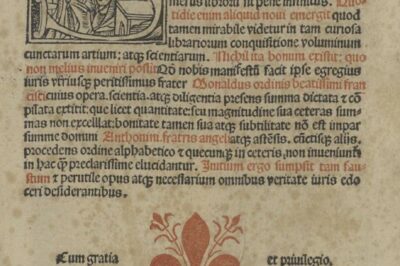 merus librorū in pene infinitus. Quo
tidie enim aliquid noui emergit quod
tamen mirabile videtur in tam curiosa
librariorum conquisitione voluminum
cunctarum artium: atq; scientiarum. Nichil ita bonum existit: quo
non melius inueniri possit. Qō nobis manifestū facit ipse egregius
iuris vtriusq; peritissimus frater Monaldus ordinis beatissimi fran
cisci: cuius opera. scientia. atq; diligentia presens summa dictata et cō
pilata extitit: que licet quantitate: seu magnitudine sua ceteras sum-
mas non excellat: bonitate tamen sua atq; subtilitate nō est impar
summe domni Anthonini. fratris angeli atq; astēsis. cūctisq; alijs.
procedens ordine alphabetico et quecunq; in ceteris non inueniunt
in hac q̄ preclarissime elucidantur. Initium ergo sumpsit tam fau-
stum et perutile opus atq; necessarium omnibus veritate iuris edo
ceri desiderantibus.
Cum gratia et priuilegio.